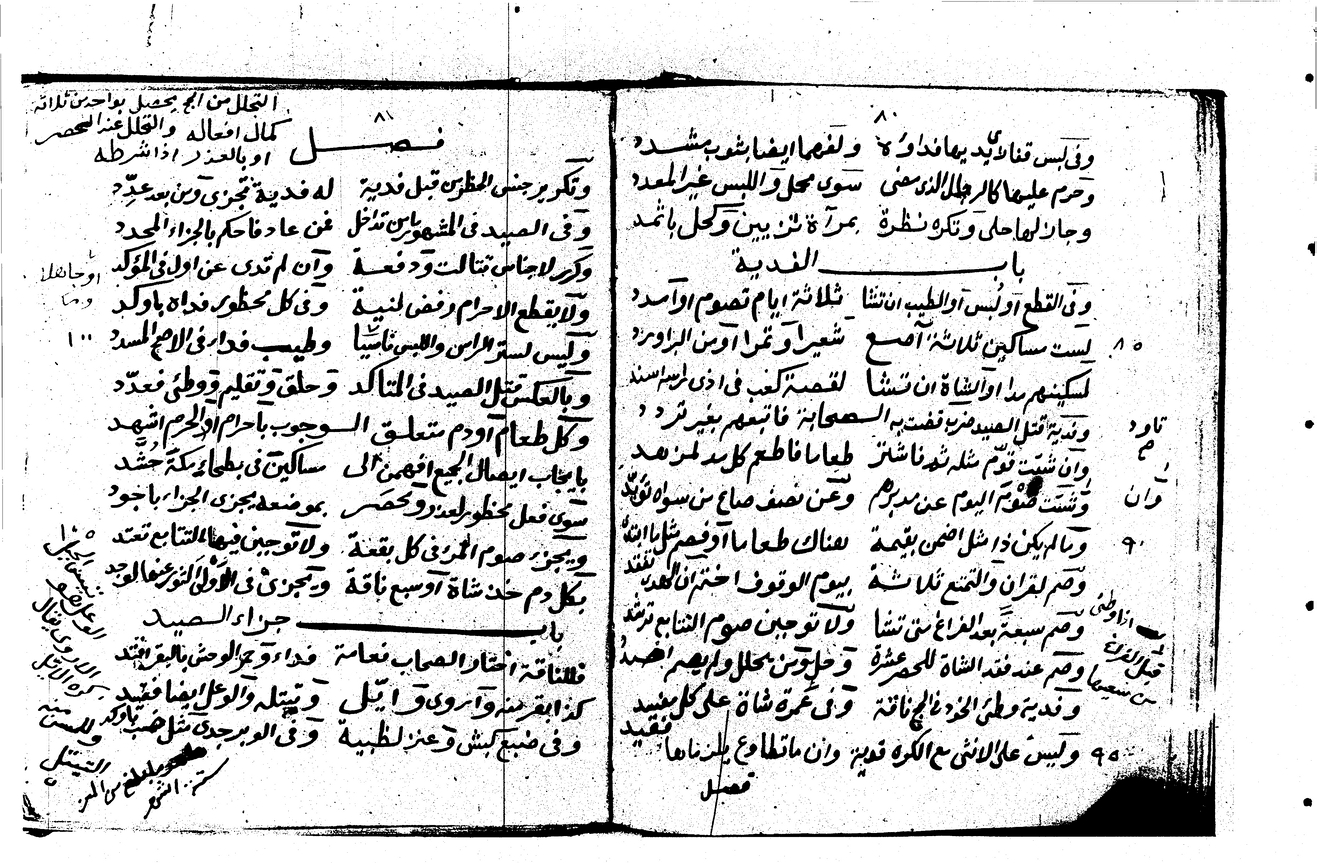 ٨٠
وفى لبس قفازيديها فداؤه ولفهما ايضا بثوب مشدد
وحرم عليها كالرجال الذى مضى سوى محمل واللبس غير المعدد
وجاز لها حلى وتكره نظرة بمرآة تزيين وكحل باثمد
باب الفدية
وفى القطع او لبس او الطيب ان تشا ثلاثة ايام تصوم او امدد
٨٥
لست مساكين ثلاثة آصع شعيرا وتمرا او من البر اوبرد
لمسكينهم مدا او الشاة ان تشا لقصة كعب فى اذى
وفدية قتل الصيد ضرب قضت به الصحابة فاتبعهم بغير تردد
وان شئت قوم مثله ثم فاشتر طعاما فاطعم كل مد لمزهد
وان
وشئت صوم اليوم عن مد برهم وعن نصف صاع من سواه
٩٠
وما لم يكن ذا مثل اضمن بقيمة هناك طعاما او فصم مثل ما ابتدى
وصم لقران والتمتع ثلاثة بيوم الوقوف اختم ان الهدى تفقد
وصم سبعة بعد الفراغ متى تشا ولا توجبن صوم التتابع ترشد
وصم عند فقد الشاة للحصر عشرة وحل ومن يحلل ولم يصم اهدد
وفدية وطئ الخود فى الحج ناقة وفى عمرة شاة على كل مفسد
٩٥
وليس على الانثى مع الكره فدية وان ما تطاوع يلزماها فقيد
فصل
٨١
التحلل من الحج يحصل بواحد من ثلاثة
كمال افعاله والتحلل عند الحصر
او بالعذر اذا شرطه
فصل
وتكرير جنس الحظر من قبل فدية له فدية تجزى ومن بعد عدد
وفى الصيد فى المشهور باين تداخل فمن عاد فاحكم بالجزاء المجدد
وكرر لاجناس تتالت ودفعة وان لم تدى عن اول فى المؤكد
ولا يقطع الاحرام رفض لنية وفى كل محظور فداه باوكد
١٠٠
وليس لستر الراس واللبس ناسيا وطيب فدا فى الاصح المسدد
وبالعكس قتل الصيد فى المتاكد وحلق وتقليم ووطئ فعدد
وكل طعام او دم متعلق الوجوب باحرام او الحرم اشهد
بايجاب ايصال الجميع افهمن الى مساكين فى بطحاء مكة حشد
سوى فعل محظور لعذر ومحصر بموضعه يجزى الجزاء باجود
١٠٥
ويجزى صوم المرء فى كل بقعة ولا توجبن فيها التتابع تعتد
بكل دم خذ شاة او سبع ناقة ويجزى فى الاولى الثور عنها
باب جزاء الصيد
فللناقة اختار الصحاب نعامة فداء وحمر الوحش بالبقر افتد
كذا بقر منه واروى وايل وثيتله والوعل ايضا فقيد
وفى ضبع كبش وعنز لظبية وفى الوبر جدى مثل ضب باوكد